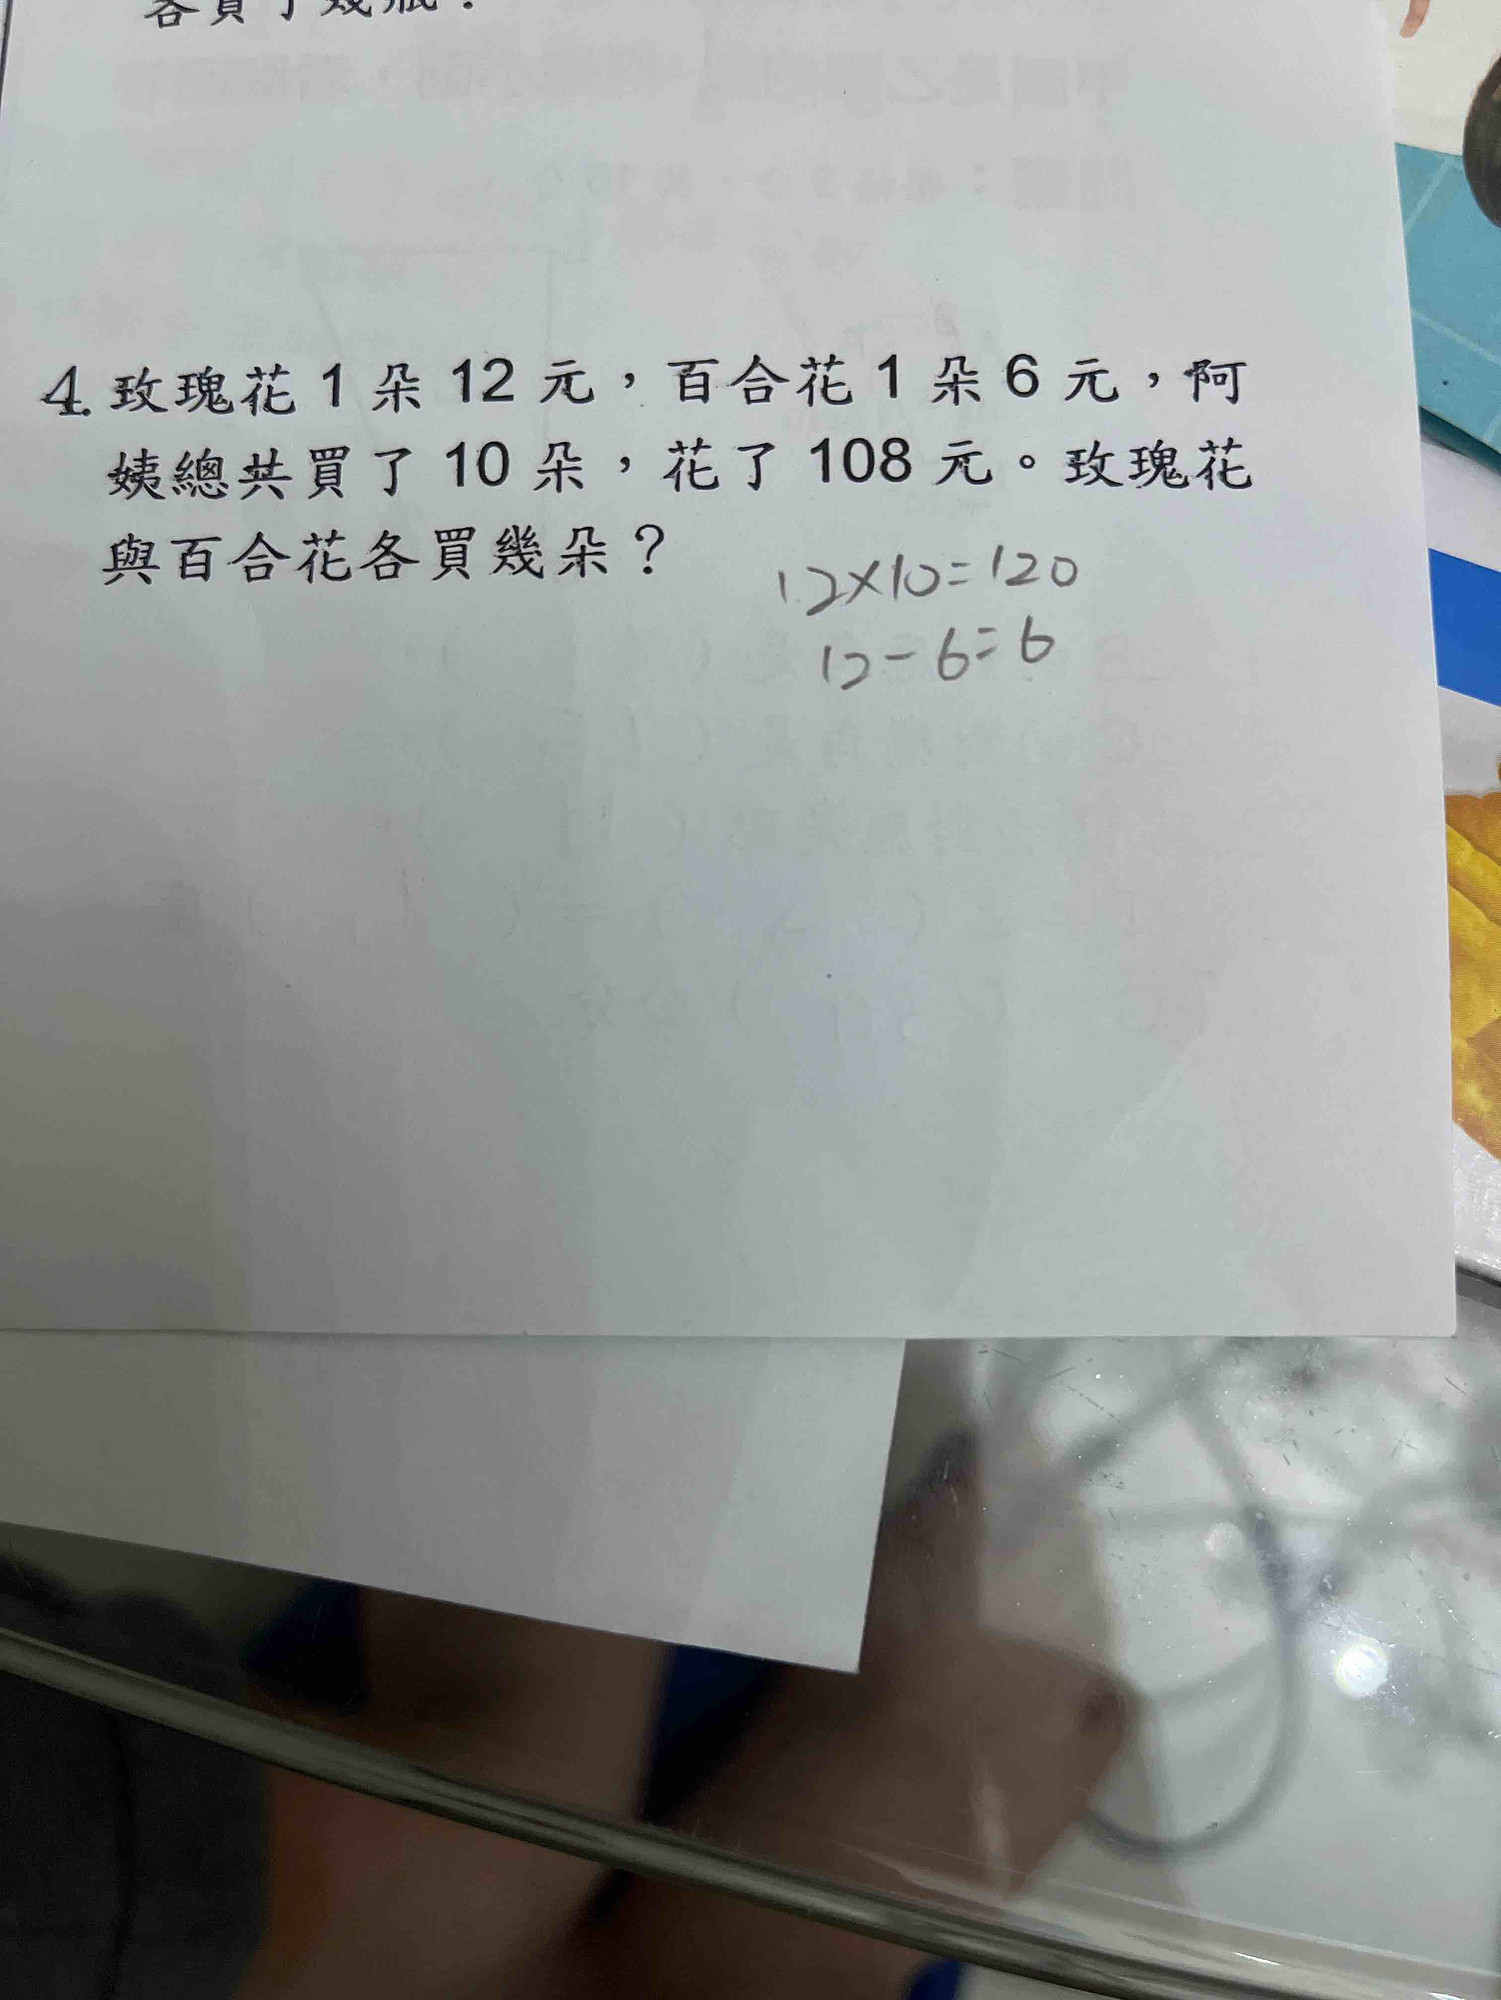 各買了幾瓶？
4. 玫瑰花 1 朵 12 元，百合花 1 朵 6 元，阿
姨總共買了 10 朵，花了 108 元。玫瑰花
與百合花各買幾朵？
12×10=120
12-6=6